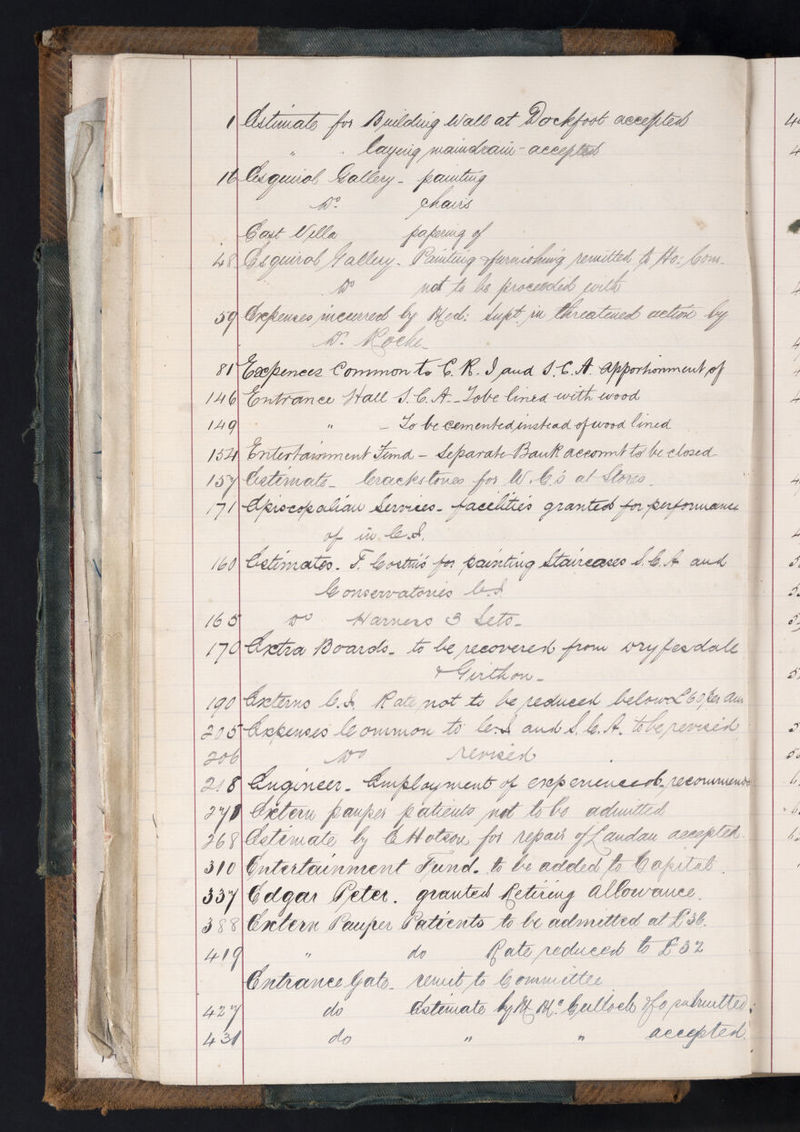 1 Estimate for Building Wall at Dockfoot accepted
" . laying maindrain - accepted
16 Esquirol Gallery - painting
Do chairs
East Villa papering of
48 Esquirol Gallery - Painting & furnishing remitted to Ho: Com.
Do not to be proceeded with
59 Expenses incurred by Med: Supt. in threatened action by
Dr. Roche
81 Expences Common to C. R. I and S. C. A. apportionment of
146 Entrance Hall S. C. A. - To be lined with wood
149 " - To be cemented instead of wood lined
154 Entertainment Fund - Separate Bank account to be closed
157 Estimate - Crackstones for W. C's at Stores.
171 Episcopalian Services - facilities granted for performance
of in C. I.
160 Estimates - T. for painting Staircases S. C. A and
Conservatories C. I
165 Do Harness 3 Sets -
170 Extra Boards - to be recovered from Dryfesdale
& Girthon -
190 Externs C. I. Rate not to be reduced below £60 per an
205 Expenses Common to C. I and S. C. A. to be revised
206 Do revised
218 Engineer - Employment of experienced, recommend
278 Extern pauper patients not to be admitted
268 Estimate by C Hotson for repair of Landau accepted
310 Entertainment Fund. to be added to Capital.
337 Edgar Peter. granted Retiring Allowance.
388 Extern Pauper Patients to be admitted at £36.
419 " do Rate reduced to £32
Entrance Gate - remit to Committee
427 do Estimate by McCulloch submitted
431 do " " accepted